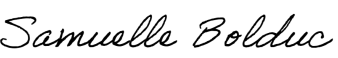 Samuelle Bolduc